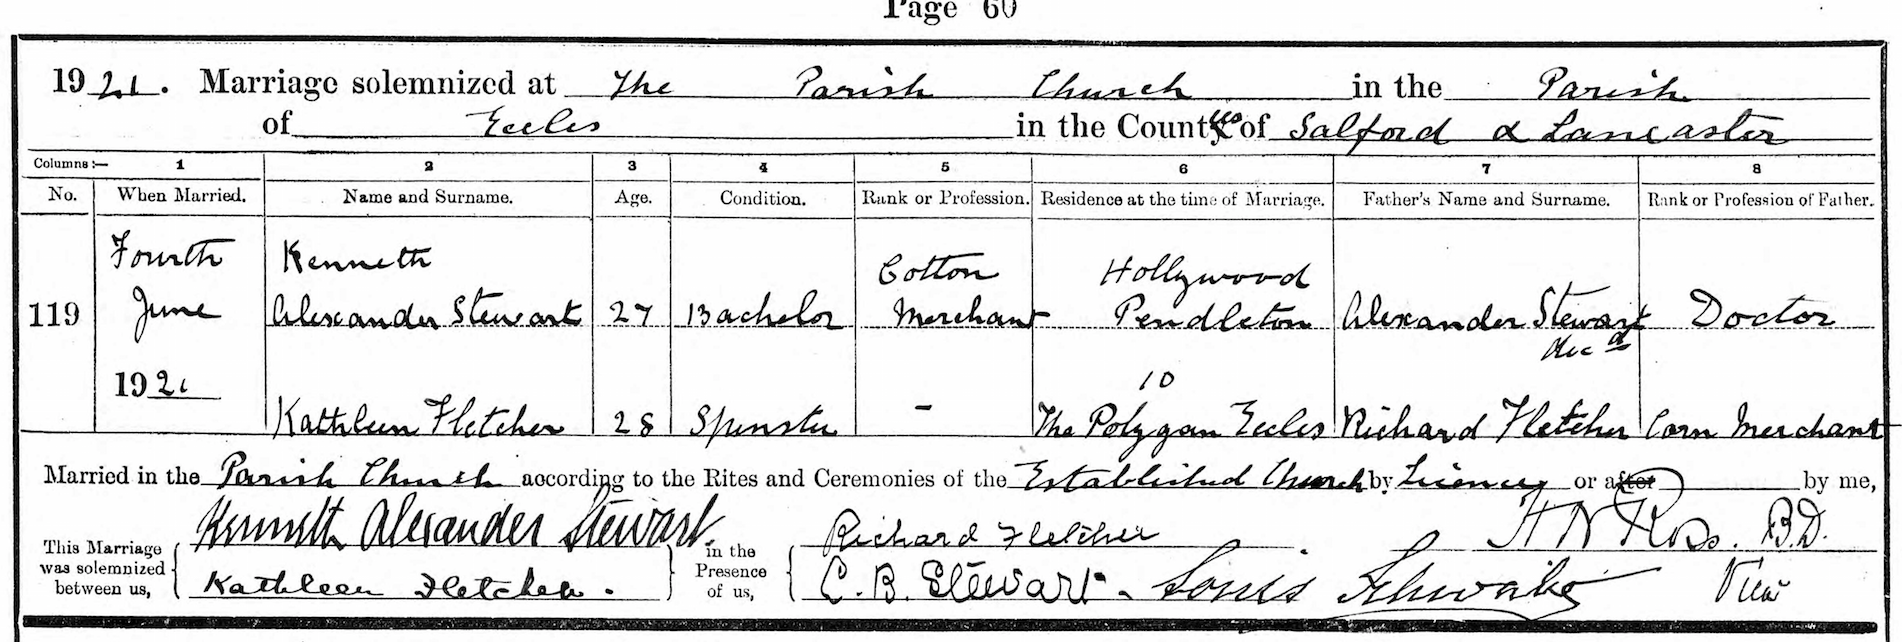 Page 60
1921. Marriage solemnized at The Parish Church in the Parish
of Eccles in the Counties of Salford & Lancaster
Columns:— 1 2 3 4 5 6 7 8
No. When Married. Name and Surname. Age. Condition. Rank or Profession. Residence at the time of Marriage. Father's Name and Surname. Rank or Profession of Father.
119 Fourth June 1921
Kenneth Alexander Stewart 27 Bachelor Cotton Merchant Hollywood Pendleton Alexander Stewart decd Doctor
Kathleen Fletcher 28 Spinster - 10 The Polygan Eccles Richard Fletcher Corn Merchant
Married in the Parish Church according to the Rites and Ceremonies of the Established Church by Licence or after by me,
This Marriage was solemnized between us, Kenneth Alexander Stewart. Kathleen Fletcher.
in the Presence of us, Richard Fletcher C. B. Stewart. Louis Schwabe
H N Ross. B.D.
Vicar